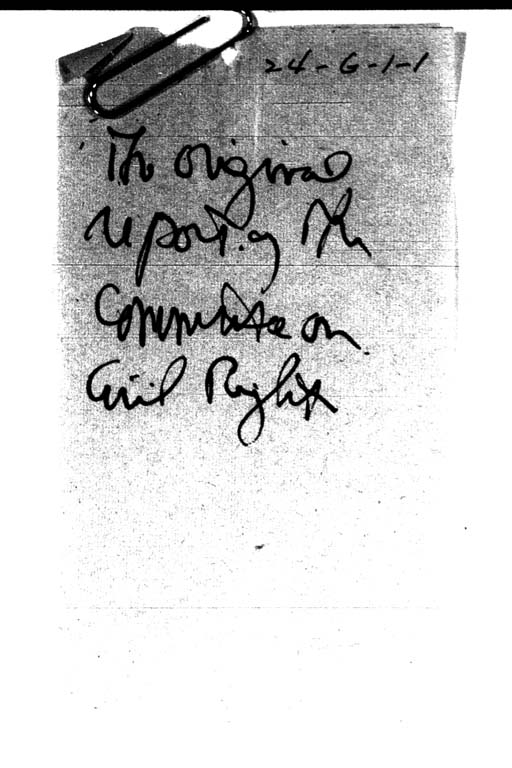 24-6-1-1
The original
report of the
Committee on
Civil Rights